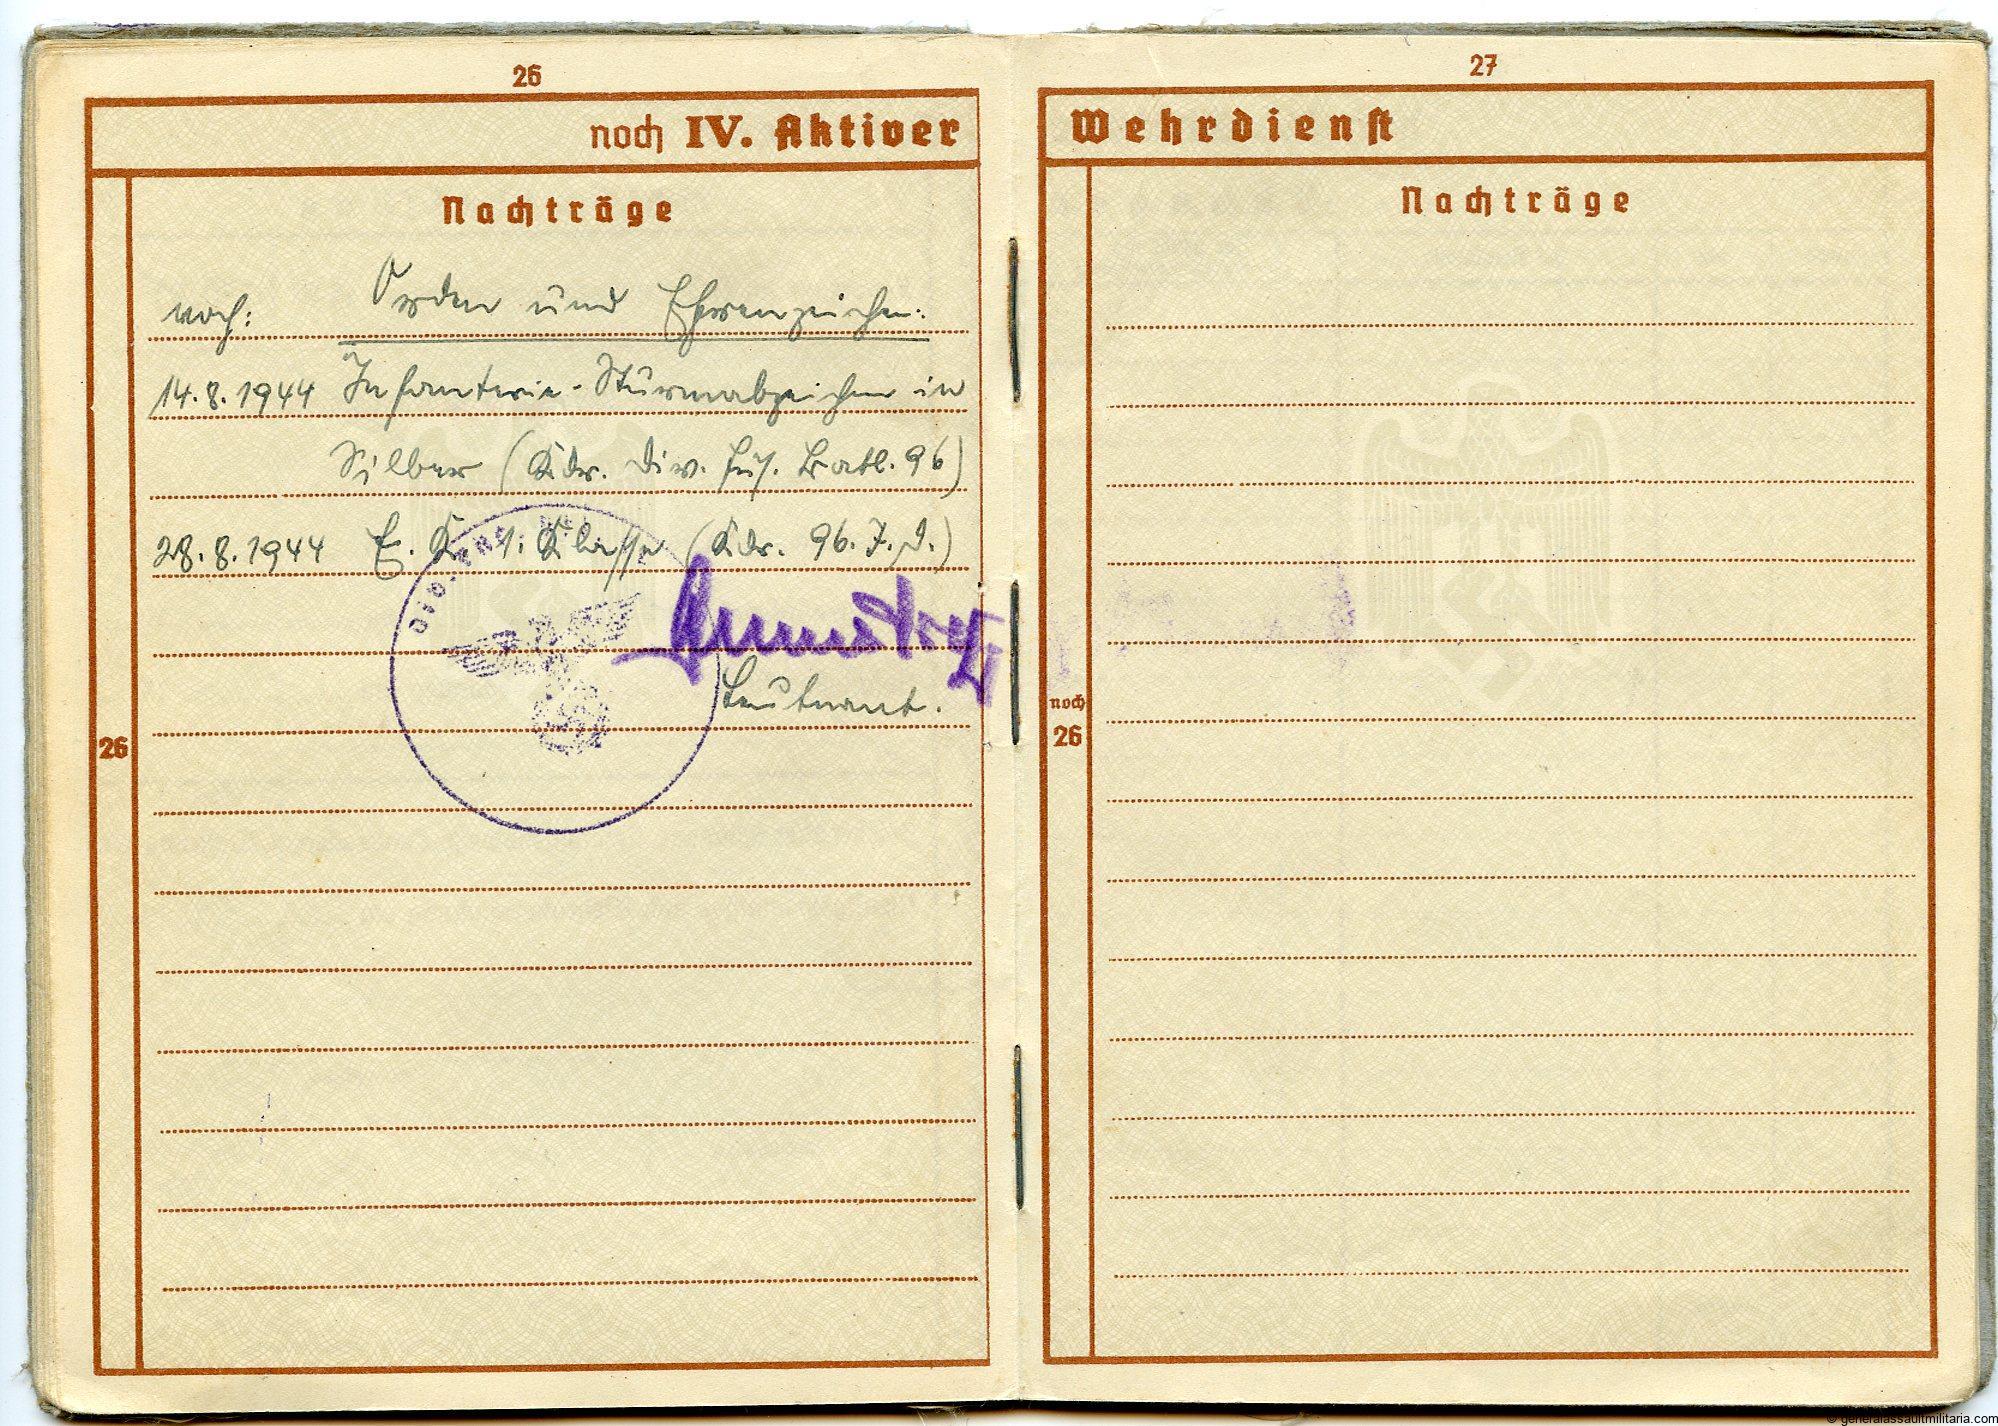 26
noch IV. Aktiver
Nachträge
noch: Orden und Ehrenzeichen:
14.8.1944 Infanterie-Sturmabzeichen in
Silber (Kdr. Div. Füs. Batl. 96)
28.8.1944 E. K. 1. Klasse (Kdr. 96. J. D.)
Leutnant.
26
27
Wehrdienst
Nachträge
noch
26
© generalassaultmilitaria.com